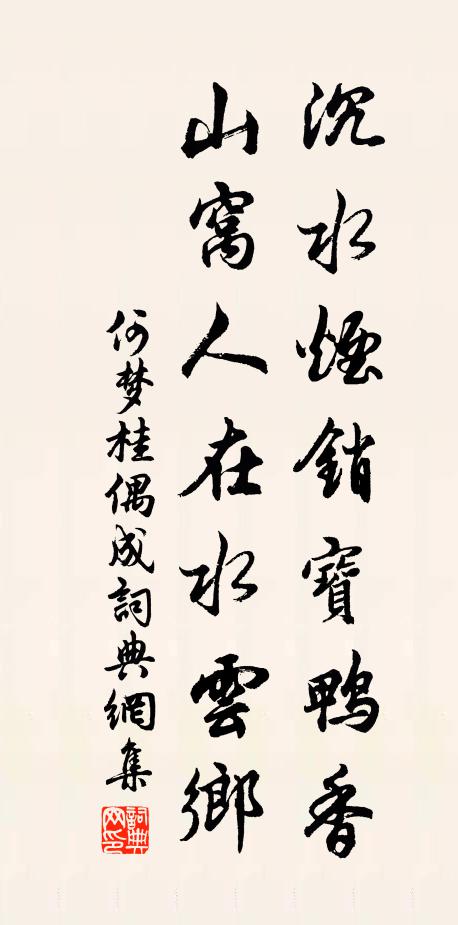 沉水煙銷寶鴨香
山窩人在水雲鄉
何梦桂偶成詞典網集
詞典
网印